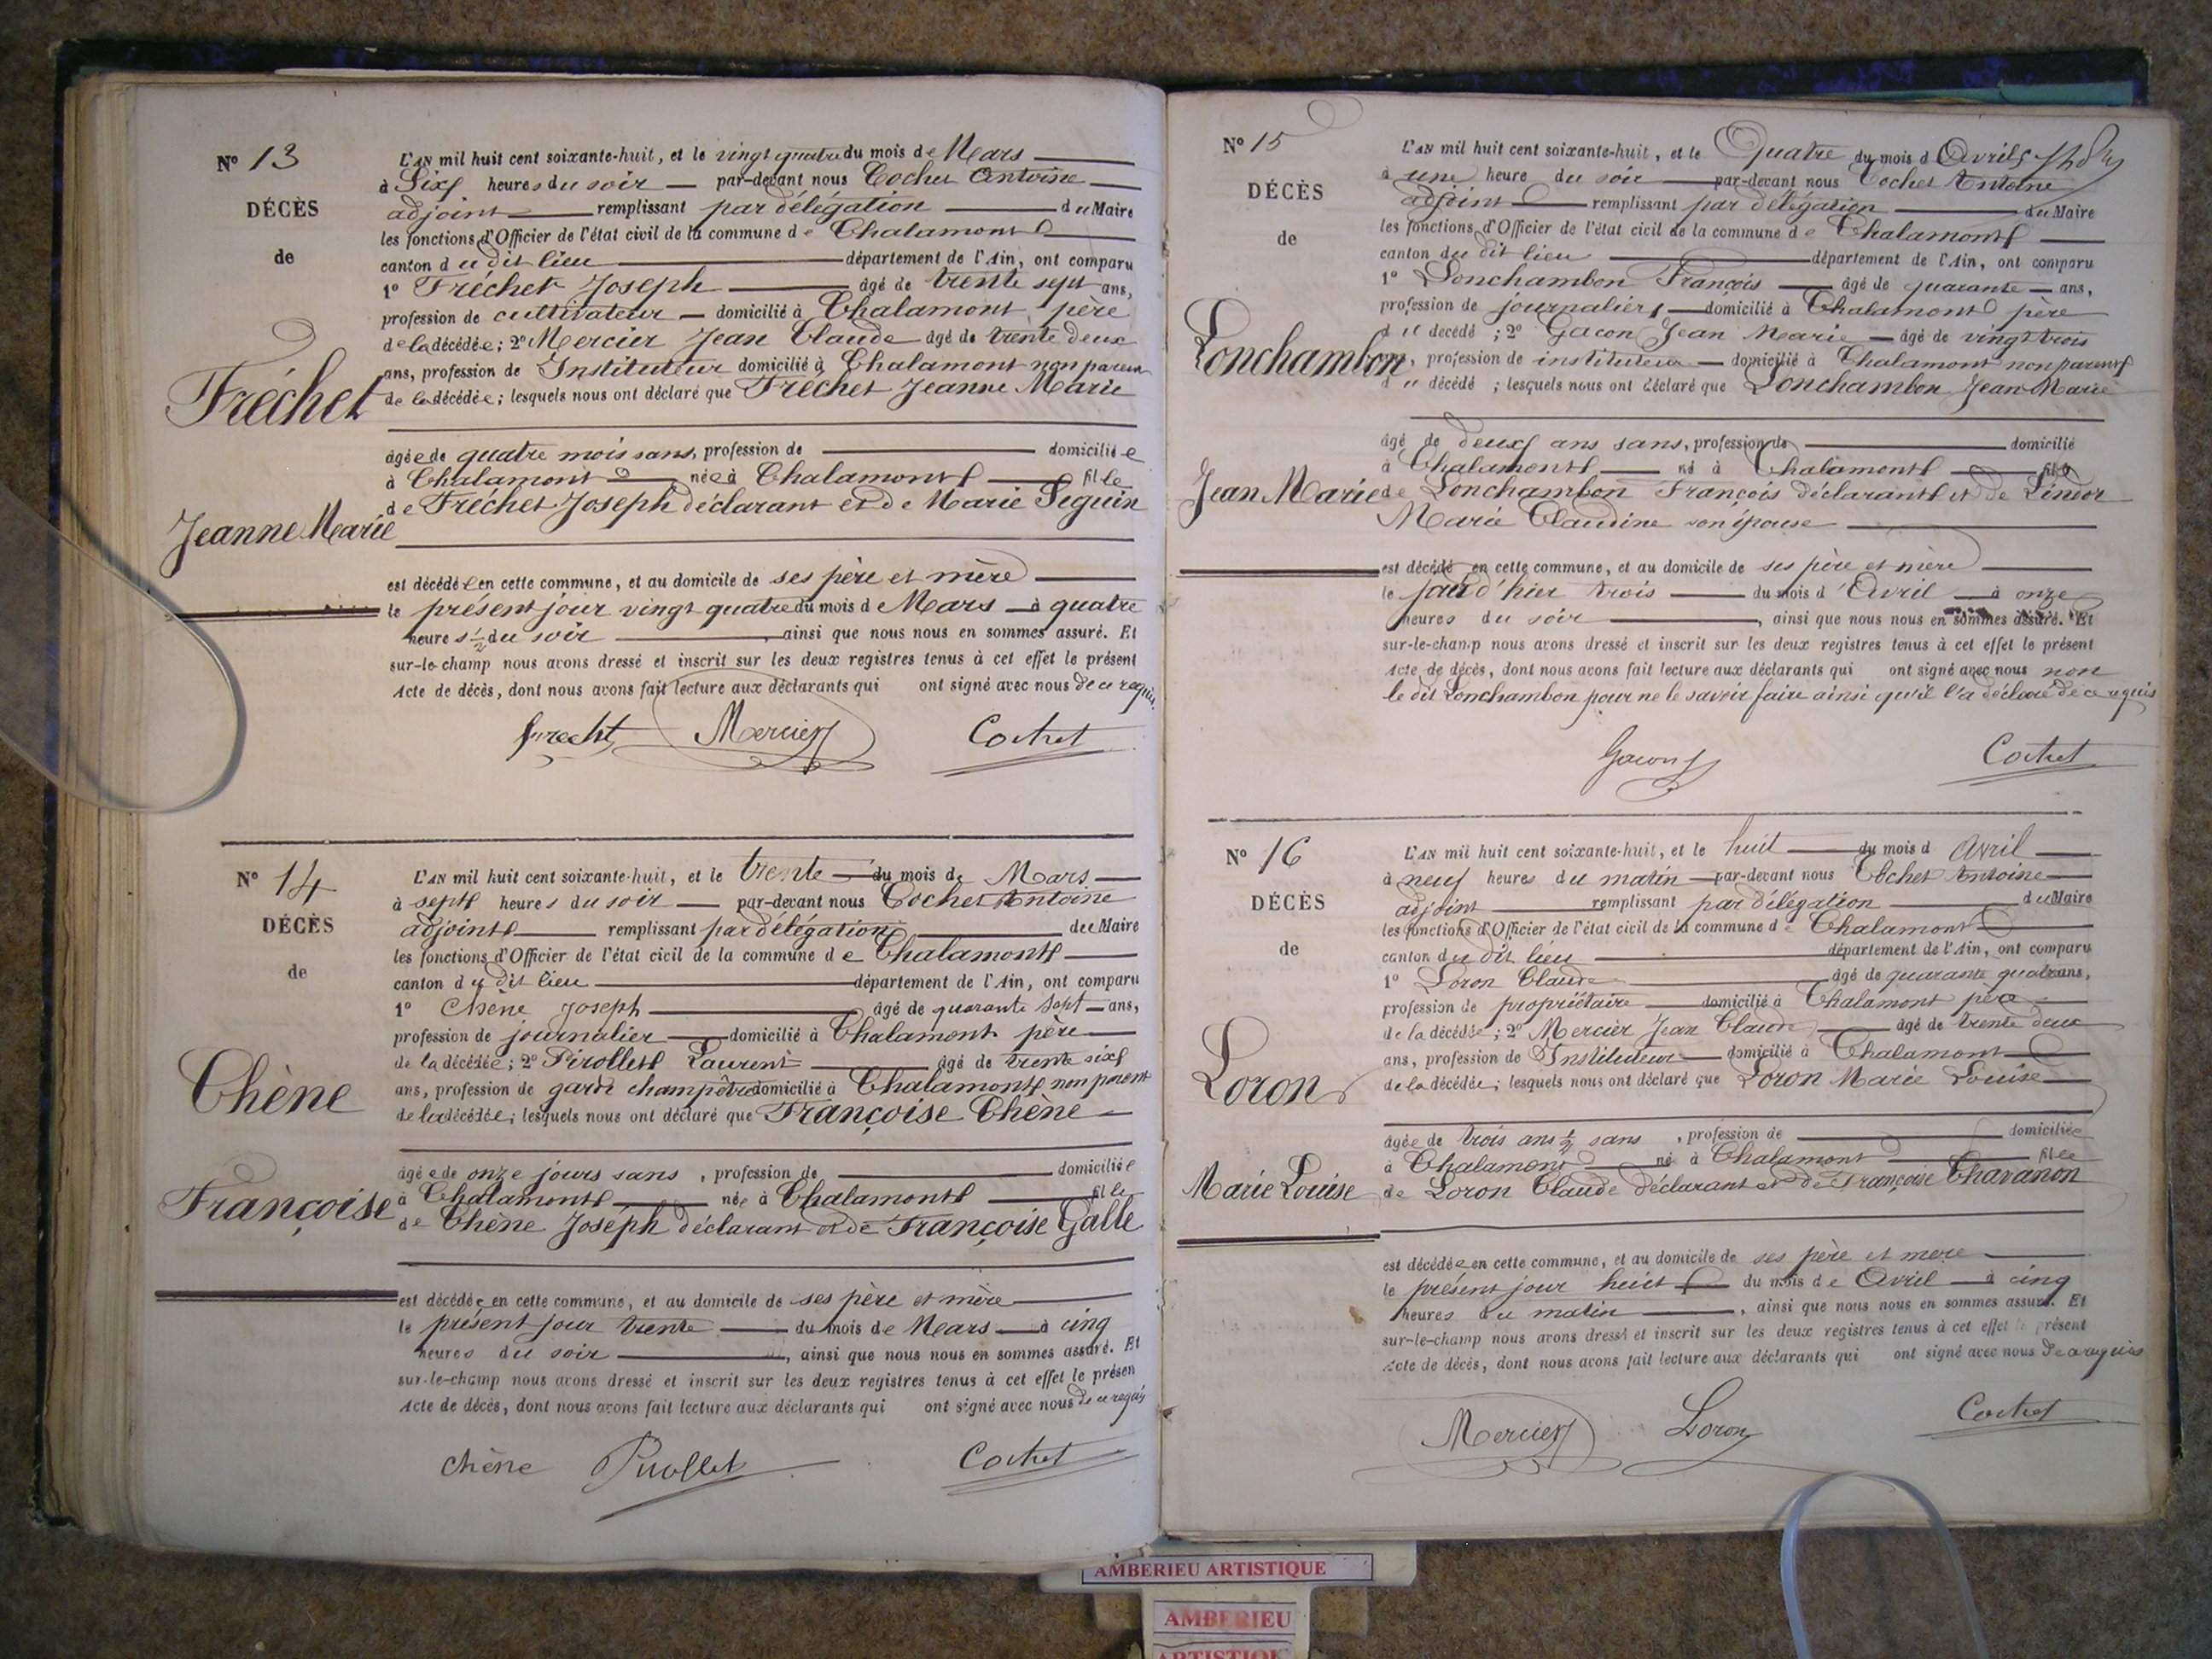 N° 13
DÉCÈS
de
Fréchet
Jeanne Marie
L'AN mil huit cent soixante-huit, et le vingt quatre du mois de Mars
à Six heures du soir par-devant nous Cochet Antoine
adjoint remplissant par délégation du Maire
les fonctions d'Officier de l'état civil de la commune de Chalamont
canton du dit lieu département de l'Ain, ont comparu
1° Fréchet Joseph âgé de trente sept ans,
profession de cultivateur domicilié à Chalamont père
de la décédée; 2° Mercier Jean Claude âgé de trente deux
ans, profession de Instituteur domicilié à Chalamont non parent
de la décédée; lesquels nous ont déclaré que Fréchet Jeanne Marie
âgée de quatre mois sans, profession de domiciliée
à Chalamont née à Chalamont fille
de Fréchet Joseph déclarant et de Marie Seguin
est décédée en cette commune, et au domicile de ses père et mère
le présent jour vingt quatre du mois de Mars à quatre
heures ½ du soir, ainsi que nous nous en sommes assuré. Et
sur-le-champ nous avons dressé et inscrit sur les deux registres tenus à cet effet le présent
Acte de décès, dont nous avons fait lecture aux déclarants qui ont signé avec nous de ce requis.
frecht Mercier Cochet
N° 14
DÉCÈS
de
Chène
Françoise
L'AN mil huit cent soixante-huit, et le trente du mois de Mars
à sept heures du soir par-devant nous Cochet Antoine
adjoint remplissant par délégation du Maire
les fonctions d'Officier de l'état civil de la commune de Chalamont
canton du dit lieu département de l'Ain, ont comparu
1° Chène Joseph âgé de quarante sept ans,
profession de journalier domicilié à Chalamont père
de la décédée; 2° Pirollet Laurent âgé de trente six
ans, profession de garde champêtre domicilié à Chalamont non parent
de la décédée; lesquels nous ont déclaré que Françoise Chène
âgée de onze jours sans, profession de domiciliée
à Chalamont née à Chalamont fille
de Chène Joseph déclarant et de Françoise Galle
est décédée en cette commune, et au domicile de ses père et mère
le présent jour trente du mois de Mars à cinq
heures du soir, ainsi que nous nous en sommes assuré. Et
sur-le-champ nous avons dressé et inscrit sur les deux registres tenus à cet effet le présen
Acte de décès, dont nous avons fait lecture aux déclarants qui ont signé avec nous de ce requis
chène Pirollet Cochet
N° 15
DÉCÈS
de
Lonchambon
Jean Marie
L'AN mil huit cent soixante-huit, et le Quatre du mois d'Avril
à une heure du soir par-devant nous Cochet Antoine
adjoint remplissant par délégation du Maire
les fonctions d'Officier de l'état civil de la commune de Chalamont
canton du dit lieu département de l'Ain, ont comparu
1° Lonchambon François âgé de quarante ans,
profession de journalier domicilié à Chalamont père
du décédé; 2° Gacon Jean Marie âgé de vingt trois
, profession de instituteur domicilié à Chalamont non parent
du décédé; lesquels nous ont déclaré que Lonchambon Jean Marie
âgé de deux ans sans, profession de domicilié
à Chalamont né à Chalamont fils
de Lonchambon François déclarant et de Linior
Marie Claudine son épouse
est décédé en cette commune, et au domicile de ses père et mère
le jour d'hier trois du mois d'Avril à onze
heures du soir, ainsi que nous nous en sommes assuré. Et
sur-le-champ nous avons dressé et inscrit sur les deux registres tenus à cet effet le présent
Acte de décès, dont nous avons fait lecture aux déclarants qui ont signé avec nous non
le dit Lonchambon pour ne le savoir faire ainsi qu'il l'a déclaré de ce requis
Gacon Cochet
N° 16
DÉCÈS
de
Loron
Marie Louise
L'AN mil huit cent soixante-huit, et le huit du mois d Avril
à neuf heures du matin par-devant nous Cochet Antoine
adjoint remplissant par délégation du Maire
les fonctions d'Officier de l'état civil de la commune de Chalamont
canton du dit lieu département de l'Ain, ont comparu
1° Loron Claude âgé de quarante quatre ans,
profession de propriétaire domicilié à Chalamont père
de la décédée; 2° Mercier Jean Claude âgé de trente deux
ans, profession de Instituteur domicilié à Chalamont
de la décédée; lesquels nous ont déclaré que Loron Marie Louise
âgée de trois ans ½ sans, profession de domiciliée
à Chalamont né à Chalamont fille
de Loron Claude déclarant et de Françoise Chavanon
est décédée en cette commune, et au domicile de ses père et mère
le présent jour huit du mois de Avril à cinq
heures du matin, ainsi que nous nous en sommes assuré. Et
sur-le-champ nous avons dressé et inscrit sur les deux registres tenus à cet effet le présent
Acte de décès, dont nous avons fait lecture aux déclarants qui ont signé avec nous de ce requis
Mercier Loron Cochet
AMBERIEU ARTISTIQUE
AMBERIEU
ARTISTIQUE